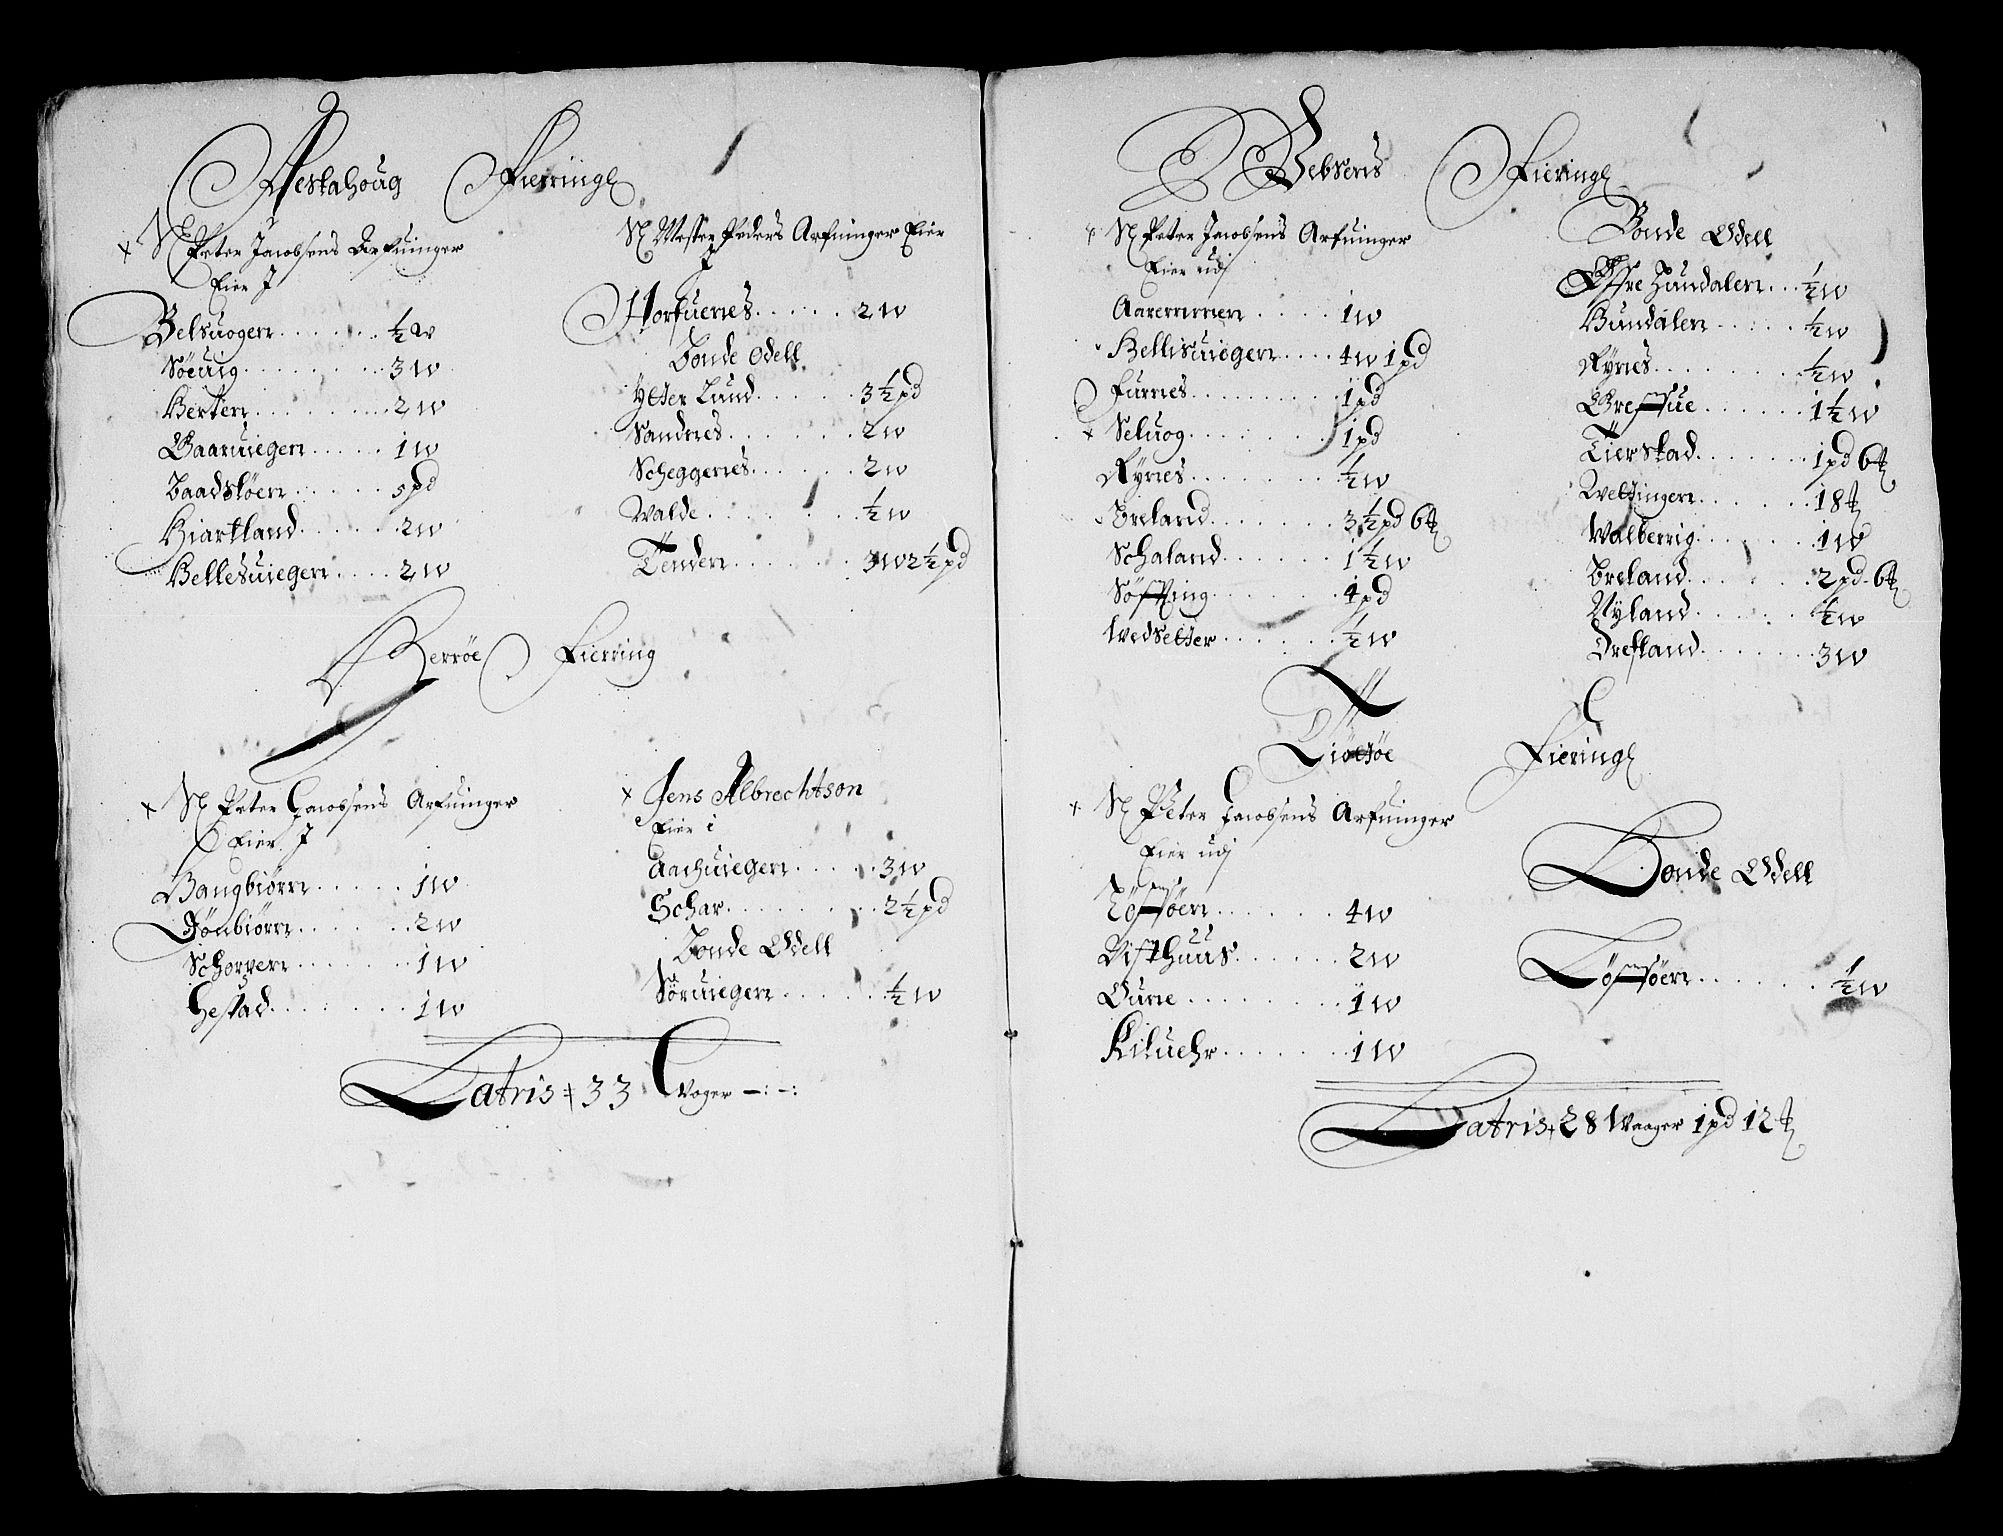 Alstahoug Fierring
S Peter Jacobsens Arfuinger
Eier J
Belsuogen ½ W
Søeuig 3 W
Berten 2 W
Baaruiegen 1 W
Baadsløen 5 pd
Hiartland 2 W
Bellesuiegen 2 W
S Mester Peders Arfuinger Eier
J
Horfuenes 2 W
Bonde Odell
Ytter Lund 3½ pd
Sandnes 2 W
Scheggenes 2 W
Walde ½ W
Tenden 3 W 2½ pd
Herrøe Fierring
S Peter Jacobsens Arfuinger
Eier J
Bangbiørn 1 W
Dønbiørn 2 W
Schorpen 1 W
Hestad 1 W
Jens Albrechtson
Eier i
Aachuiegen 3 W
Schar 2½ pd
Bonde Odell
Søruiegen ½ W
Latris 33 Woger
Vebsens Fiering
S Peter Jacobsens Arfuinger
Eier udj
Aaremmen 1 W
Bellisuiegen 4 W 1 pd
Furnes 1 pd
Seluog 1 pd
Rynes ½ W
Breland 3½ pd 6 ℔
Schaland 1½ W
Søfting 4 pd
Wedsetter ½ W
Bonde Odell
Øffre Hundalen ½ W
Hundalen ½ W
Rynes ½ W
Greffsue 1½ W
Tierstad 1 pd 6 ℔
Wettingen 18 ℔
Walberrig 1 W
Breland 2 pd 6 ℔
Nyland ½ W
Drefland 3 W
Tiøttøe Fiering
S Peter Jacobsens Arfuinger
Eier udj
Løffsøen 4 W
Visthuus 2 W
Oune 1 W
Kiluehr 1 W
Bonde Odell
Løffsøen ½ W
Latris 28 Waager 1 pd 12 ℔